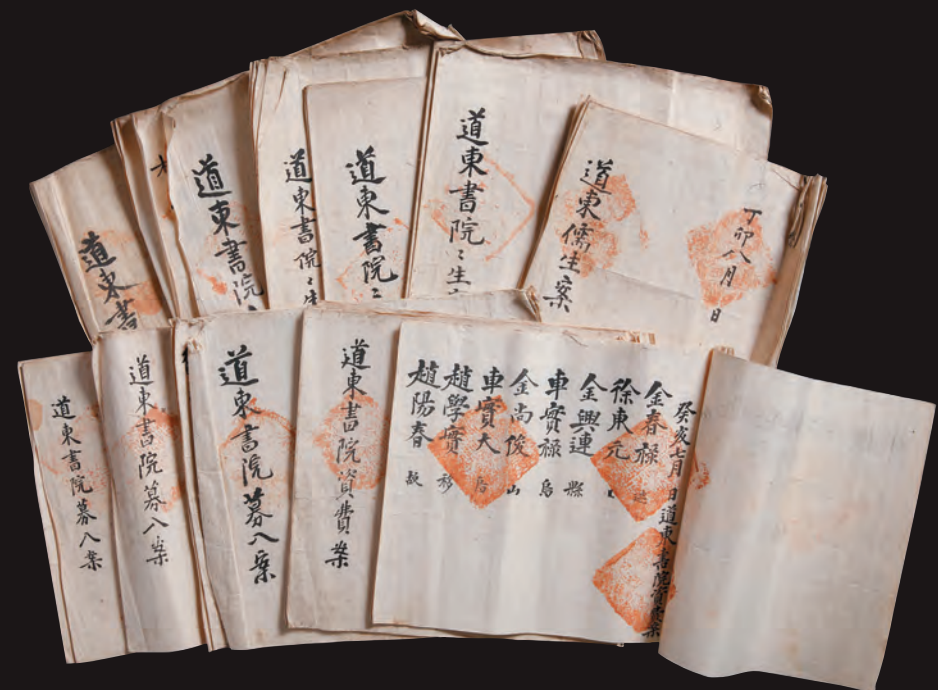 道東書
道東書院
道東書院
道東書院
道東書院〻生
道東儒生案
丁卯八月 日
道東書院募入案
道東書院募入案
道東書院募入案
道東書院資費案
癸亥七月 日道東書院資案
金春祿
徐東元
金興連 縣
車實祿 烏
金尚俊 山
車實大
趙學實 移
趙陽春 故